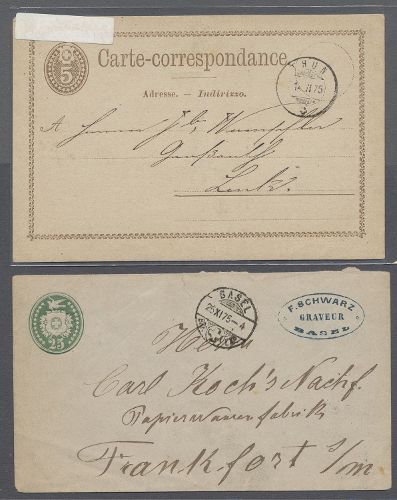 5
Carte-correspondance.
Adresse. — Indirizzo.
THUN
14 II 75
A Herrn
Lenk.
25
BASEL
25 XI 75 - 4
F. SCHWARZ
GRAVEUR
BASEL
Herrn
Carl Koch's Nachf.
Papierwaarenfabrik
Frankfort a/m